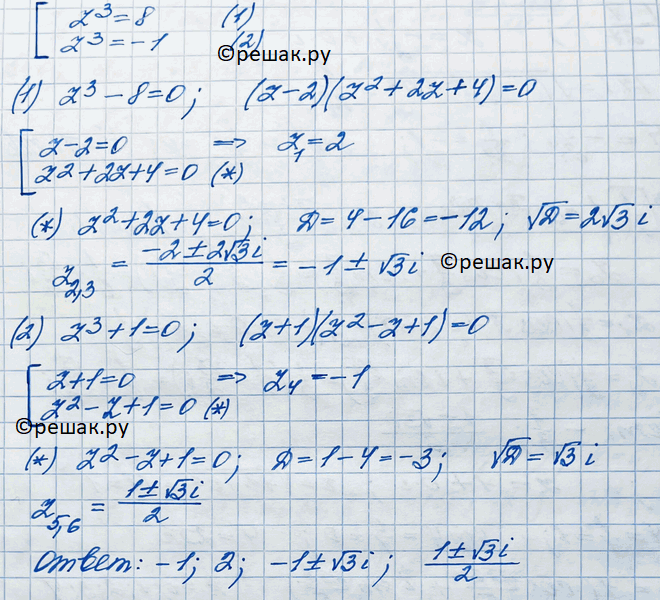 [ z³ = 8 (1)
z³ = -1 (2)
©решак.ру
(1) z³ - 8 = 0; (z-2)(z² + 2z + 4) = 0
[ z - 2 = 0 => z₁ = 2
z² + 2z + 4 = 0 (*)
(*) z² + 2z + 4 = 0; D = 4 - 16 = -12; √D = 2√3 i
z₂,₃ = (-2 ± 2√3 i)/2 = -1 ± √3 i ©решак.ру
(2) z³ + 1 = 0; (z+1)(z² - z + 1) = 0
[ z + 1 = 0 => z₄ = -1
z² - z + 1 = 0 (*)
©решак.ру
(*) z² - z + 1 = 0; D = 1 - 4 = -3; √D = √3 i
z₅,₆ = (1 ± √3 i)/2
Ответ: -1; 2; -1 ± √3 i; (1 ± √3 i)/2